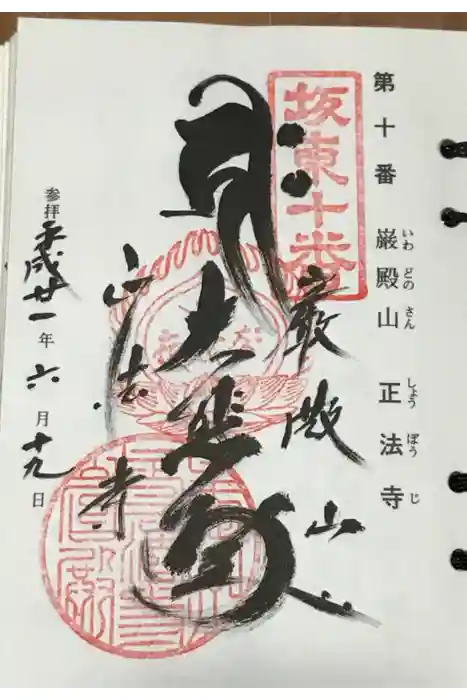 第十番 巌殿山 正法寺
いわ どの さん しょう ぼう じ
坂東十番
巌殿山
大悲殿
正法寺
参拝 平成廿一年 六月 十九日